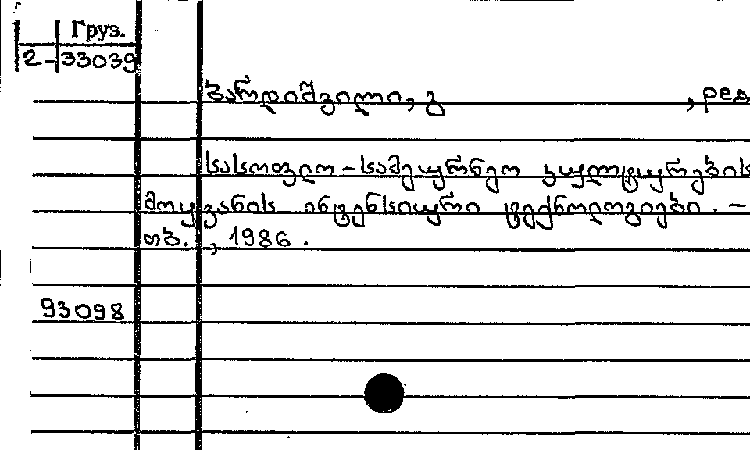 Груз.
2-33039
ბარდიშვილი, გ , ред
სასოფლო-სამეურნეო კულტურების
მოყვანის ინტენსიური ტექნოლოგიები. –
თბ., 1986.
93098